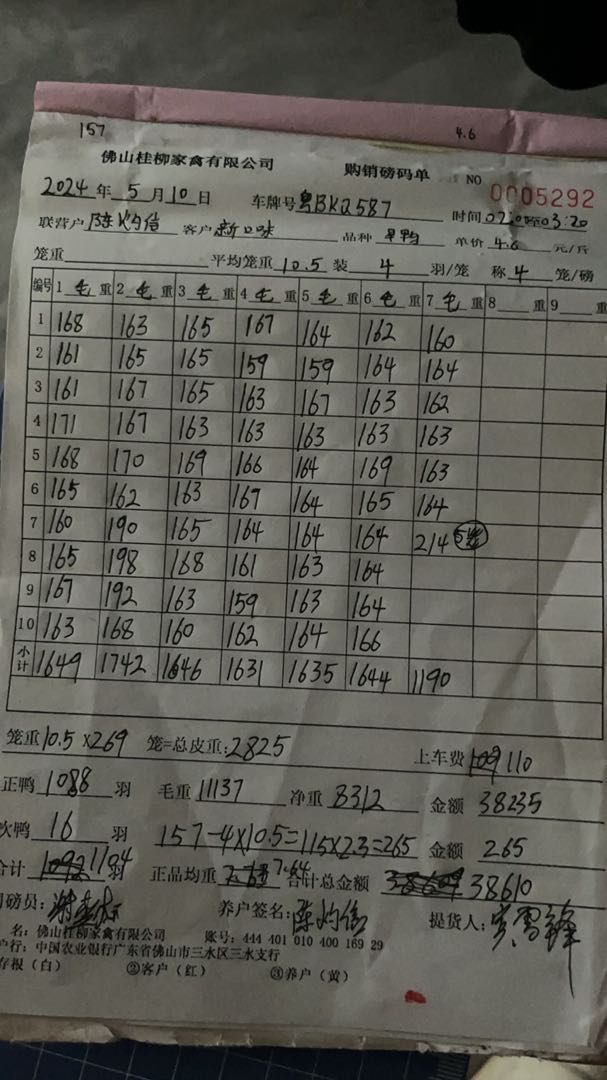 157 4.6
佛山桂柳家禽有限公司 购销磅码单 NO 0005292
2024年5月10日 车牌号粤BKQ587 时间 03:20
联营户 陈灼信 客户 新口味 品种 单价 4.6 元/斤
笼重 平均笼重10.5 装 4 羽/笼 称 4 笼/磅
编号 1毛重 2毛重 3毛重 4毛重 5毛重 6毛重 7毛重 8 重 9 重
1 168 163 165 167 164 162 160
2 161 165 165 159 159 164 164
3 161 167 165 163 167 163 162
4 171 167 163 163 163 163 163
5 168 170 169 166 164 169 163
6 165 162 163 167 164 165 164
7 160 190 165 164 164 164 214
8 165 198 168 161 163 164
9 167 192 163 159 163 164
10 163 168 160 162 164 166
小计 1649 1742 1646 1631 1635 1644 1190
笼重10.5×269 笼=总皮重:2825 上车费 110
正鸭 1088 羽 毛重 11137 净重 8312 金额 38235
次鸭 16 羽 157-4×10.5=115×2.3=265 金额 265
合计 羽 正品均重 7.64 合计总金额 38610
司磅员: 养户签名:陈灼信 提货人:
名:佛山桂柳家禽有限公司 账号:444 401 010 400 169 29
户行:中国农业银行广东省佛山市三水区三水支行
存根(白) ②客户(红) ③养户(黄)